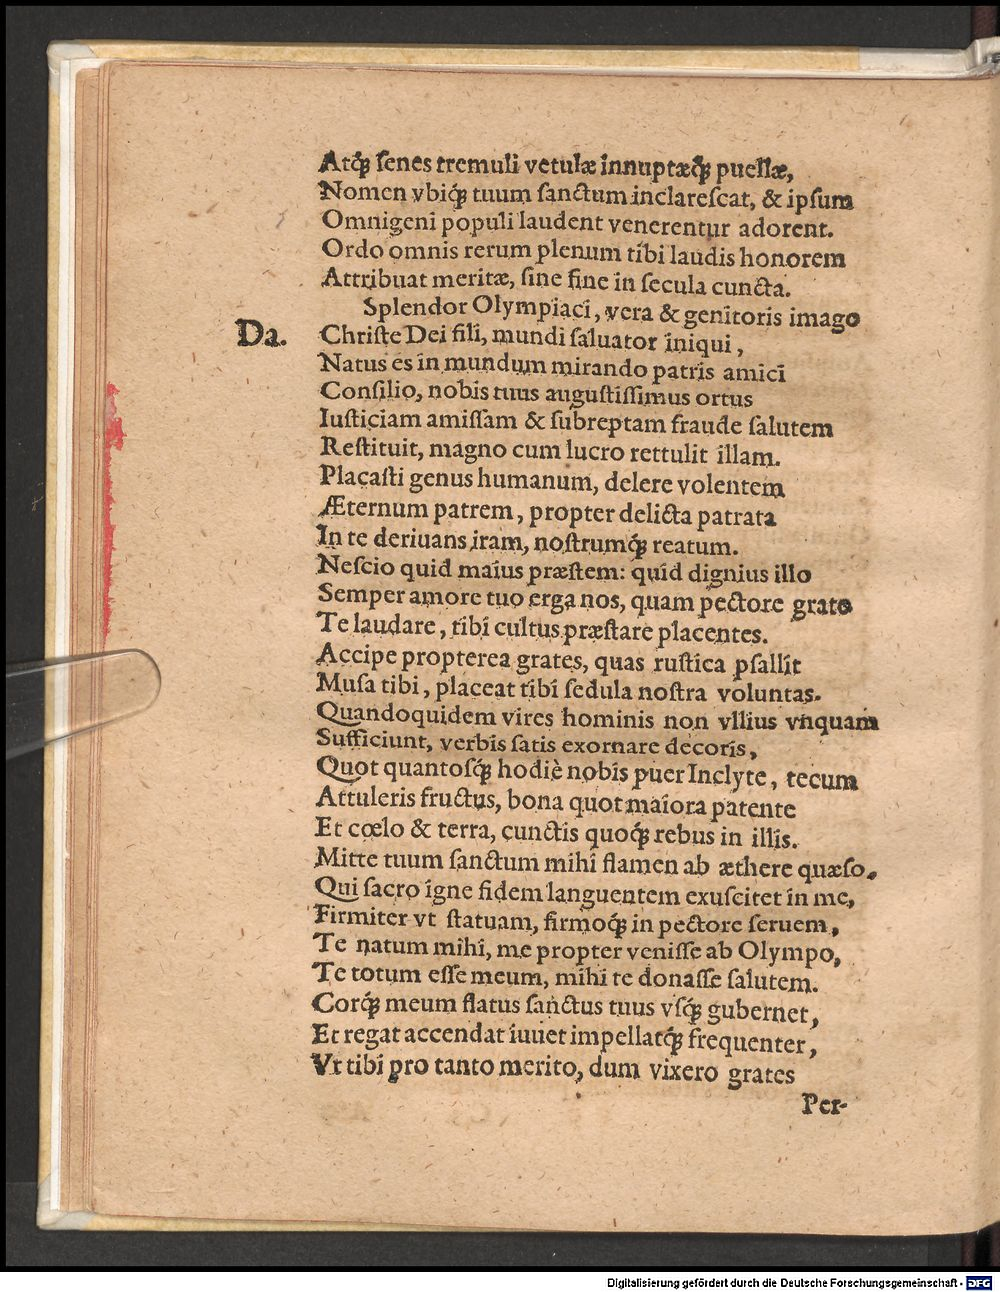 Atq́ꝫ ſenes tremuli vetulæ innuptæq́ꝫ puellæ,
Nomen vbiq́ꝫ tuum ſanctum inclareſcat, & ipſum
Omnigeni populi laudent venerentur adorent.
Ordo omnis rerum plenum tibi laudis honorem
Attribuat meritæ, ſine fine in ſecula cuncta.
Splendor Olympiaci, vera & genitoris imago
Da. Chriſte Dei fili, mundi ſaluator iniqui,
Natus es in mundum mirando patris amici
Conſilio, nobis tuus auguſtiſſimus ortus
Iuſticiam amiſſam & ſubreptam fraude ſalutem
Reſtituit, magno cum lucro rettulit illam.
Placaſti genus humanum, delere volentem
Æternum patrem, propter delicta patrata
In te deriuans iram, noſtrumq́ꝫ reatum.
Neſcio quid maius præſtem: quid dignius illo
Semper amore tuo erga nos, quam pectore grato
Te laudare, tibi cultus præſtare placentes.
Accipe propterea grates, quas ruſtica pſallit
Muſa tibi, placeat tibi ſedula noſtra voluntas.
Quandoquidem vires hominis non vllius vnquam
Sufficiunt, verbis ſatis exornare decoris,
Quot quantoſq́ꝫ hodiè nobis puer Inclyte, tecum
Attuleris fructus, bona quot maiora patente
Et cœlo & terra, cunctis quoq́ꝫ rebus in illis.
Mitte tuum ſanctum mihi flamen ab æthere quæſo.
Qui ſacro igne fidem languentem exuſcitet in me,
Firmiter vt ſtatuam, firmoq́ꝫ in pectore ſeruem,
Te natum mihi, me propter veniſſe ab Olympo,
Te totum eſſe meum, mihi te donaſſe ſalutem.
Corq́ꝫ meum flatus ſanctus tuus vſq́ꝫ gubernet,
Et regat accendat iuuet impellatq́ꝫ frequenter,
Vt tibi pro tanto merito, dum vixero grates
Per-
Digitalisierung gefördert durch die Deutsche Forschungsgemeinschaft - DFG